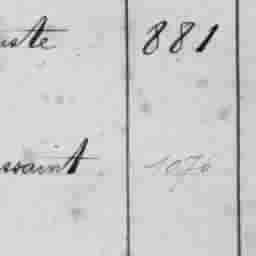 uste 881
ssaint 1076